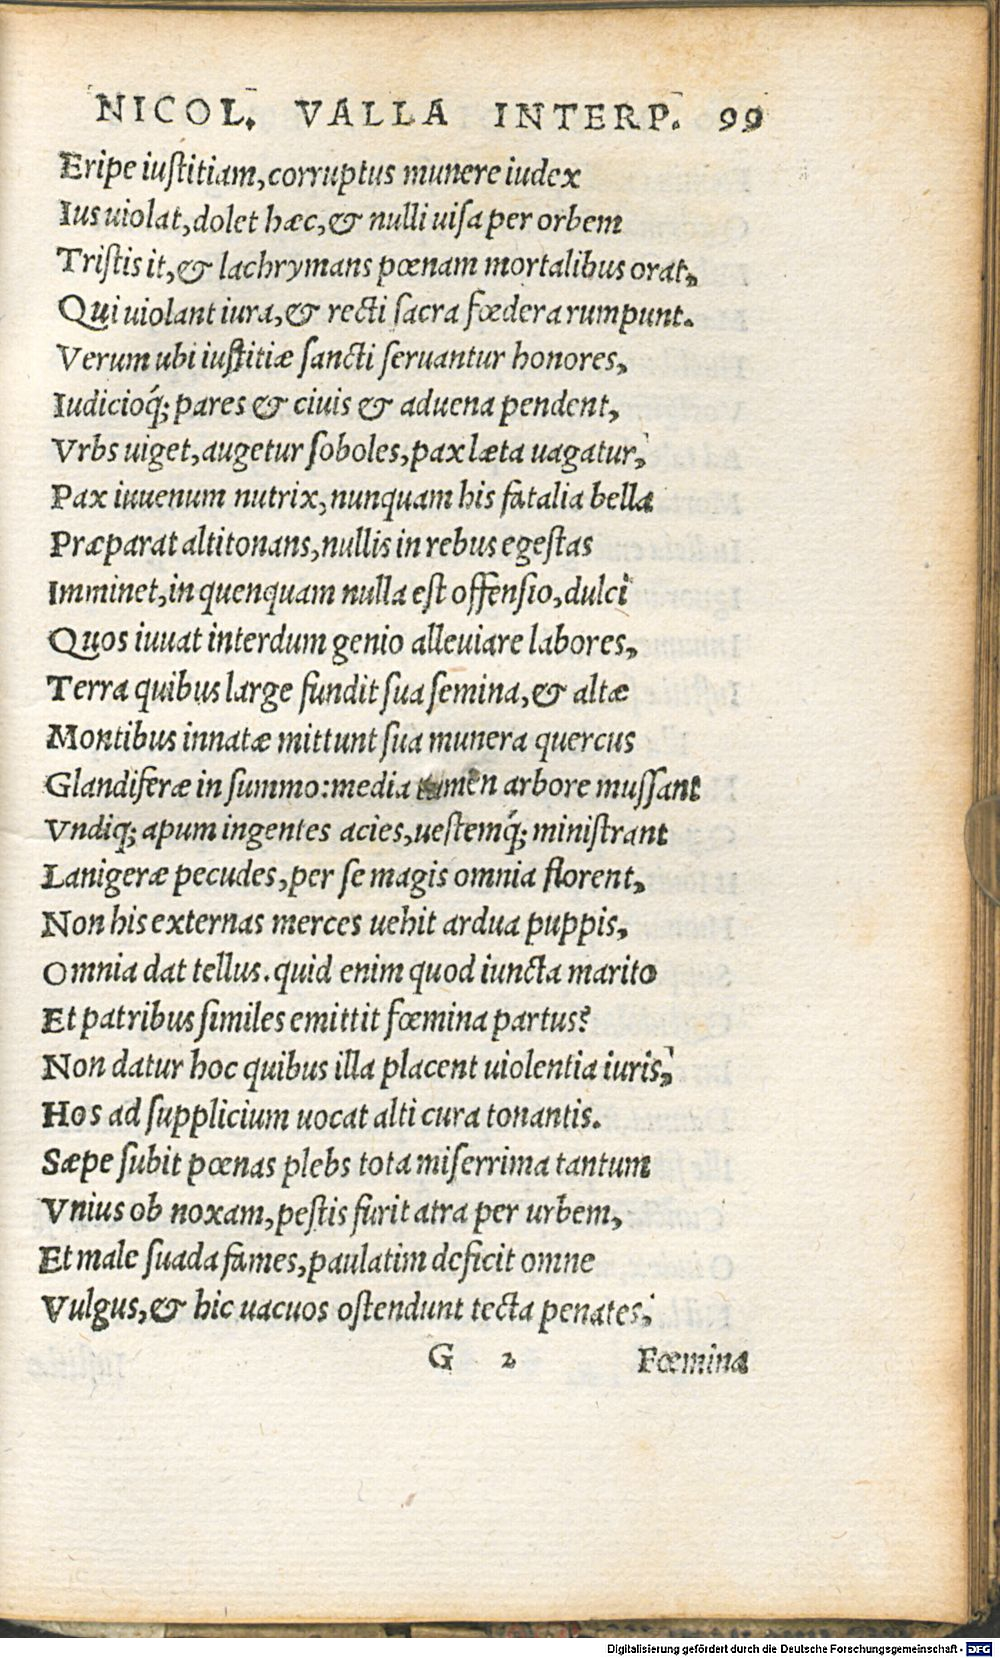 NICOL. VALLA INTERP. 99
Eripe iuſtitiam, corruptus munere iudex
Ius uiolat, dolet hæc, & nulli uiſa per orbem
Triſtis it, & lachrymans pœnam mortalibus orat,
Qui uiolant iura, & recti ſacra fœdera rumpunt.
Verum ubi iuſtitiæ ſancti ſeruantur honores,
Iudicioq́; pares & ciuis & aduena pendent,
Vrbs uiget, augetur ſoboles, pax læta uagatur,
Pax iuuenum nutrix, nunquam his fatalia bella
Præparat altitonans, nullis in rebus egeſtas
Imminet, in quenquam nulla eſt offenſio, dulci
Quos iuuat interdum genio alleuiare labores,
Terra quibus large fundit ſua ſemina, & altæ
Montibus innatæ mittunt ſua munera quercus
Glandiferæ in ſummo: media tamen arbore muſſant
Vndiq; apum ingentes acies, ueſtemq́; miniſtrant
Lanigeræ pecudes, per ſe magis omnia florent,
Non his externas merces uehit ardua puppis,
Omnia dat tellus. quid enim quod iuncta marito
Et patribus ſimiles emittit fœmina partus?
Non datur hoc quibus illa placent uiolentia iuris,
Hos ad ſupplicium uocat alti cura tonantis.
Sæpe ſubit pœnas plebs tota miſerrima tantum
Vnius ob noxam, peſtis furit atra per urbem,
Et male ſuada fames, paulatim deficit omne
Vulgus, & hic uacuos oſtendunt tecta penates,
G 2 Fœmina
Digitalisierung gefördert durch die Deutsche Forschungsgemeinschaft - DFG